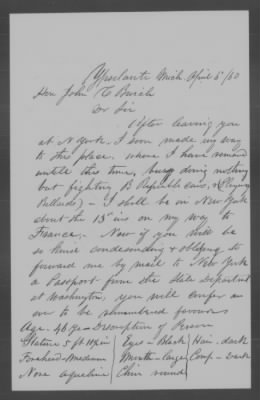 Ypsilanti Mich. April 6/60
Hon John C Burch
Dr Sir
After leaving you
at N York. I soon made my way
to this place, where I have remained
untill this time, busy doing nothing
but fighting B Republicans, & (Playing
Billiards) - I shall be in New York
about the 13th ins on my way to
France. - Now if you will be
so kind condesending & obliging to
forward me by mail to New York
a Passport from the State Department
at Washington, you will confer an
ever to be remembered favour
Age. 46 ye - Description of Person
Stature 5 ft Eye - Black Hair - dark
Forehead - Medium Mouth - large Comp. - Dark
Nose Aquiline Chin round